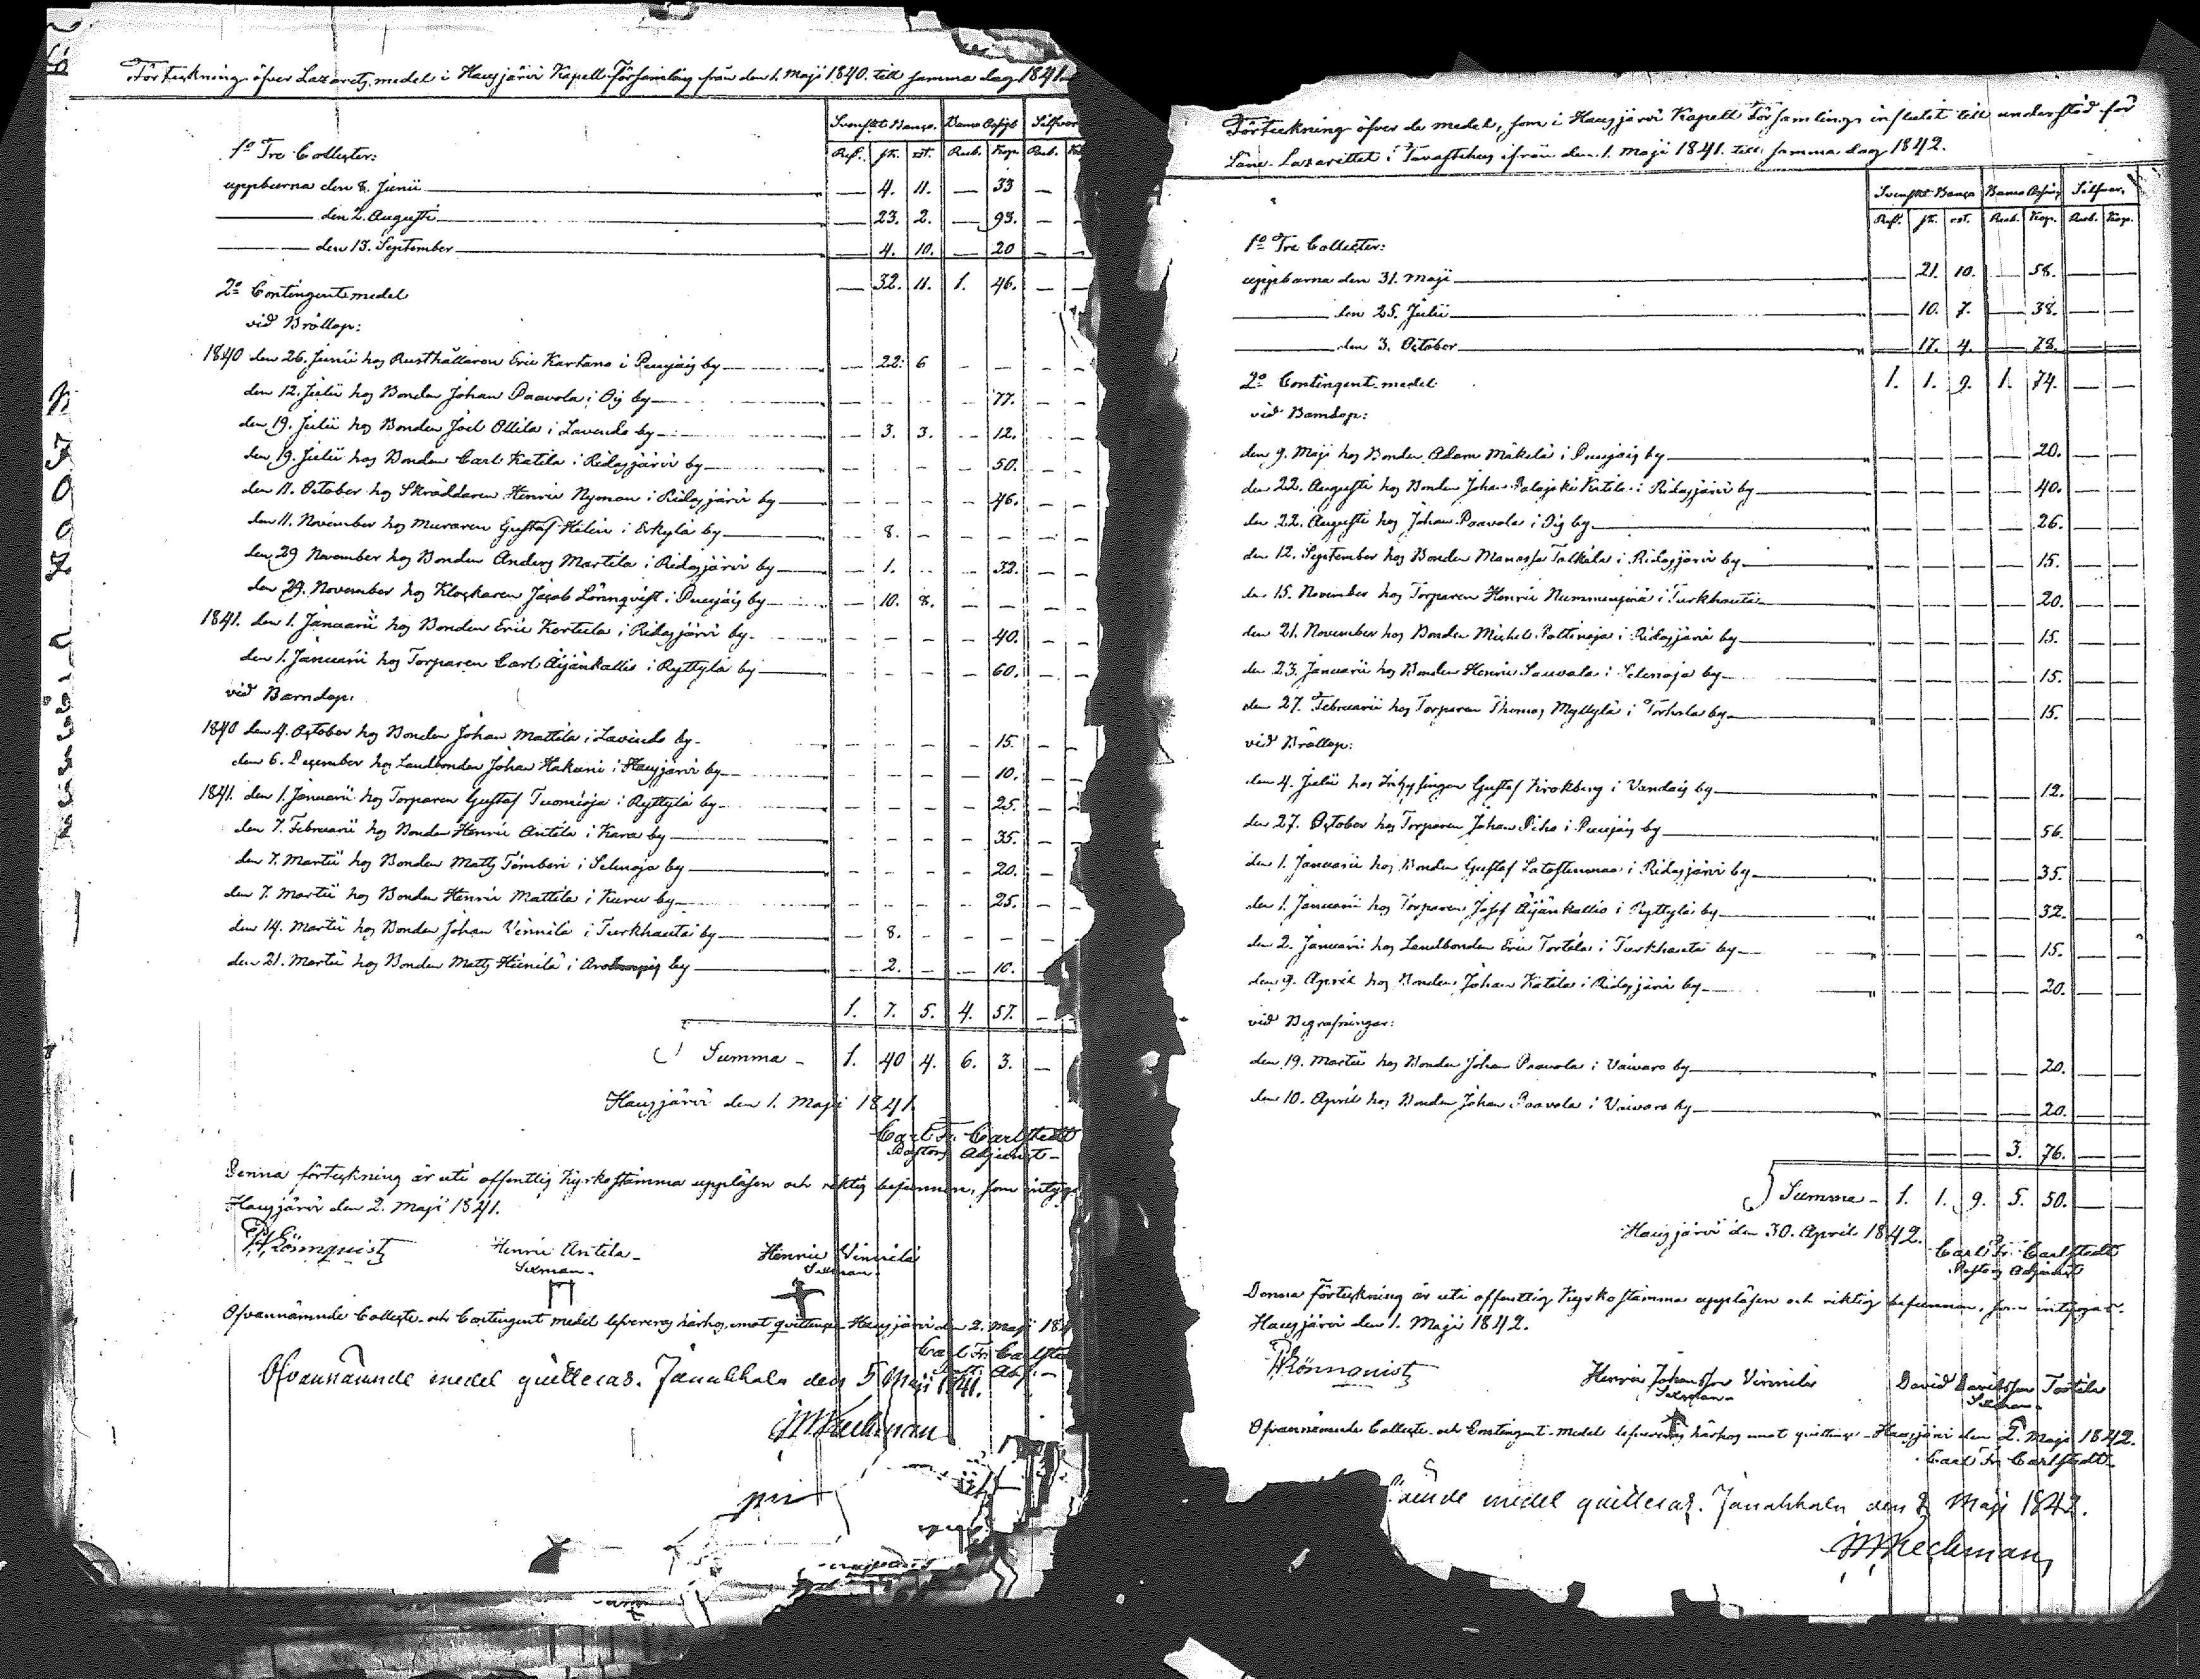 Förteckning öfver Lazaretts medel i Hausjärvi Kapell-Församling från den 1. Maji 1840. till samma dag 1841.
Svenskt Banco. Banco Assign. Silfver
Rdr. sk. rst. Rub. Kop. Rub.
1o Tre Collecter:
uppburna den 8. Junii — 4. 11. — 33 —
den 2. Augusti — 23. 2. — 93. —
den 13. September — 4. 10. — 20 —
— 32. 11. 1. 46. — —
2o Contingentsmedel
vid Bröllop:
1840 den 26. Junii hos Rusthållaren Eric Kartano i Puujais by — 22. 6 — — —
den 12. Julii hos Bonden Johan Paavola i Ois by — — — — 77. — —
den 19. Julii hos Bonden Joel Ollila i Lavinto by — 3. 3. — 12. — —
den 19. Julii hos Bonden Carl Katila i Ridasjärvi by — — — — 50. — —
den 11. October hos Skräddaren Henric Nyman i Ridasjärvi by — — — — 46. — —
den 11. November hos Muraren Gustaf Helin i Erkylä by — 8. — — — — —
den 29 November hos Bonden Anders Martila i Ridasjärvi by — 1. — — 32. — —
den 29. November hos Klockaren Jacob Lönnqvist i Puujais by — 10. 8. — — — —
1841. den 1. Januarii hos Bonden Eric Kertula i Ridasjärvi by — — — — 40. — —
den 1. Januarii hos Torparen Carl Äijänkallio i Ryttylä by — — — — 60. — —
vid Barndop:
1840 den 4. October hos Bonden Johan Mattila i Lavinto by — — — — 15. — —
den 6. December hos Landbonden Johan Hakuni i Hausjärvi by — — — — 10. — —
1841. den 1. Januarii hos Torparen Gustaf Tuomioja i Ryttylä by — — — — 25. — —
den 7. Februarii hos Bonden Henric Antila i Kara by — — — — 35. — —
den 7. Martii hos Bonden Matts Tömberi i Selänoja by — — — — 20. — —
den 7. Martii hos Bonden Henric Mattila i Kuru by — — — — 25. — —
den 14. Martii hos Bonden Johan Vinnilä i Turkhauta by — 8. — — — — —
den 21. Martii hos Bonden Matts Hienilä i by — 2. — — 10. —
1. 7. 5. 4. 57. —
Summa - 1. 40 4. 6. 3. —
Hausjärvi den 1. Maji 1841.
Carl Fr. Carlstedt
Pastors Adjunct
Denna förteckning är uti offentlig Kyrkostämma uppläsen och riktig befunnen, som intyga
Hausjärvi den 2. Maji 1841.
Lönnquist Henric Antila Henric Vinnilä
Sexman Sexman
Ofvannämnde Collecte- och Contingent medel levereras härhos, emot quittence. Hausjärvi den 2. Maji 184
Carl Fr. Carlste
Past. Adj.
Ofvannämnde medel quitteras. Janakkala den 5 Maji 1841.
Förteckning öfver de medel, som i Hausjärvi Kapell Församlings influtit till understöd för
Läns Lazarettet i Tavastehus ifrån den 1. Maji 1841. till samma dag 1842.
Svenskt Banco Banco Assign. Silfver.
Rdr. sk. rst. Rub. Kop. Rub. Kop.
1o Tre Collecter:
uppburna den 31. Maji — 21. 10. — 58. — —
den 25. Julii — 10. 7. — 38. — —
den 3. October — 17. 4. — 78. — —
2o Contingent-medel 1. 1. 9. 1. 74. — —
vid Barndop:
den 9. Maji hos Bonden Adam Mäkelä i Puujais by — — — — 20. — —
den 22. Augusti hos Bonden Johan Katila i Ridasjärvi by — — — — 40. — —
den 22. Augusti hos Johan Paavola i Ois by — — — — 26. — —
den 12. September hos Bonden Manasse Talkala i Ridasjärvi by — — — — 15. — —
den 15. November hos Torparen Henric Nummenpää i Turkhauta — — — — 20. — —
den 21. November hos Bonden Michel Pottinoja i Ridasjärvi by — — — — 15. — —
den 23. Januarii hos Bonden Henric Sauvala i Selänoja by — — — — 15. — —
den 27. Februarii hos Torparen Thomas Myllylä i Torhola by — — — — 15. — —
vid Bröllop:
den 4. Julii hos Inhysingen Gustaf i Vandais by — — — — 12. — —
den 27. October hos Torparen Johan Piho i Puujais by — — — — 56. — —
den 1. Januarii hos Bonden Gustaf Latostenmaa i Ridasjärvi by — — — — 35. — —
den 1. Januarii hos Torparen Josef Äijänkallio i Ryttylä by — — — — 32. — —
den 2. Januarii hos Landbonden Eric Tortila i Turkhauta by — — — — 15. — —
den 9. April hos Bonden Johan Katila i Ridasjärvi by — — — — 20. — —
vid Begrafningar:
den 19. Martii hos Bonden Johan Paavola i Vaivaro by — — — — 20. — —
den 10. April hos Bonden Johan Paavola i Vaivaro by — — — — 20. — —
— — — 3. 76. — —
Summa - 1. 1. 9. 5. 50. — —
Hausjärvi den 30. April 1842.
Carl Fr. Carlstedt
Pastors Adjunct
Denna förteckning är uti offentlig Kyrkostämma uppläsen och riktig befunnen, som intygar.
Hausjärvi den 1. Maji 1842.
Lönnquist Henric Johansson Vinnilä David Davidsson Tortila
Sexman Sexman
Ofvannämnde Collecte- och Contingent-medel levereras härhos emot quittence. Hausjärvi den 2. Maji 1842.
Carl Fr. Carlstedt
nämnde medel quitteras. Janakkala den 8 Maji 1842.